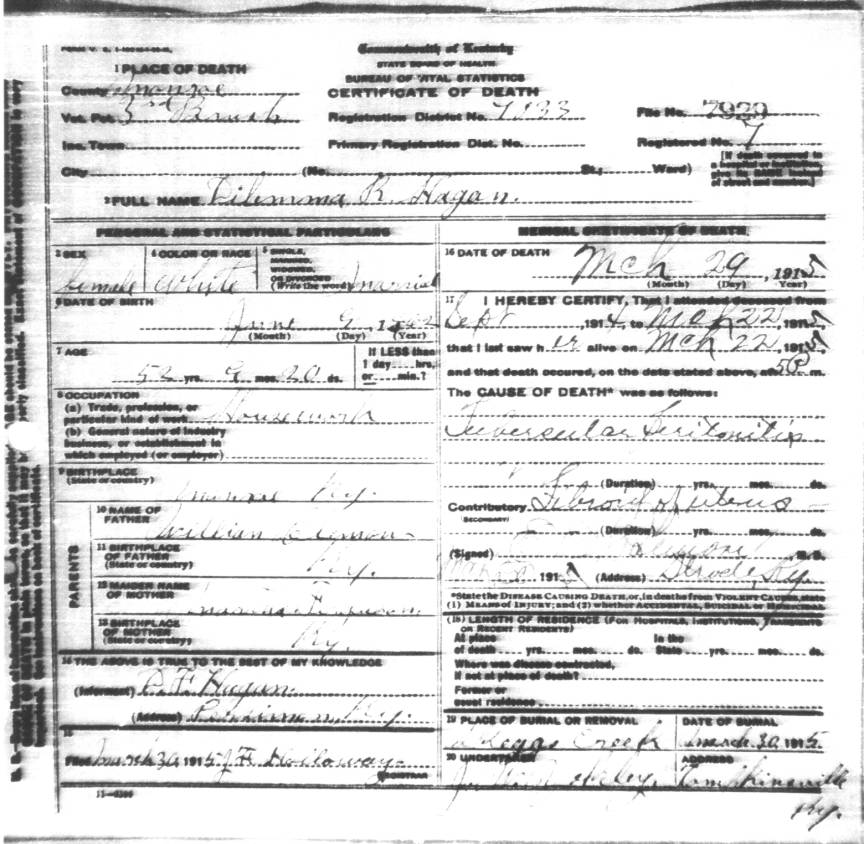 Commonwealth of Kentucky
STATE BOARD OF HEALTH
BUREAU OF VITAL STATISTICS
CERTIFICATE OF DEATH
1 PLACE OF DEATH
County Monroe
Vot. Pct. 3rd
Inc. Town
City (No. St.; Ward)
Registration District No. 7133
Primary Registration Dist. No.
File No. 7929
Registered No. 7
[If death occurred in
a hospital or institution,
give its NAME instead
of street and number.]
2 FULL NAME Dilemma R. Hagan.
PERSONAL AND STATISTICAL PARTICULARS
3 SEX
female
4 COLOR OR RACE
White
5 SINGLE,
MARRIED,
WIDOWED,
OR DIVORCED
(Write the word) married
6 DATE OF BIRTH
June 9, 1862
(Month) (Day) (Year)
7 AGE
52 yrs. 9 mos. 20 ds.
If LESS than
1 day hrs.
or min.?
8 OCCUPATION
(a) Trade, profession, or
particular kind of work Housework
(b) General nature of industry
business, or establishment in
which employed (or employer)
9 BIRTHPLACE
(State or country)
Monroe Ky.
PARENTS
10 NAME OF
FATHER
William
11 BIRTHPLACE
OF FATHER
(State or country) Ky.
12 MAIDEN NAME
OF MOTHER
13 BIRTHPLACE
OF MOTHER
(State or country) Ky.
14 THE ABOVE IS TRUE TO THE BEST OF MY KNOWLEDGE
(Informant) P. F. Hagan
(Address) Ky.
15
Filed March 30 1915 J. F. Holloway
REGISTRAR
MEDICAL CERTIFICATE OF DEATH
16 DATE OF DEATH
Mch 29, 1915
(Month) (Day) (Year)
17 I HEREBY CERTIFY, That I attended deceased from
Sept 1914, to Mch 22, 1915
that I last saw her alive on Mch 22, 1915
and that death occured, on the date stated above, at 5 P m.
The CAUSE OF DEATH* was as follows:
Tubercular Peritonitis
(Duration) yrs. mos. ds.
Contributory Fibroid of uterus
(SECONDARY)
(Duration) yrs. mos. ds.
(Signed) M. D.
191 (Address) Strode, Ky.
*State the DISEASE CAUSING DEATH, or, in deaths from VIOLENT CAUSES, state
(1) MEANS OF INJURY; and (2) whether ACCIDENTAL, SUICIDAL or HOMICIDAL
(18) LENGTH OF RESIDENCE (FOR HOSPITALS, INSTITUTIONS, TRANSIENTS
OR RECENT RESIDENTS)
At place
of death yrs. mos. ds.
In the
State yrs. mos. ds.
Where was disease contracted,
if not at place of death?
Former or
usual residence
19 PLACE OF BURIAL OR REMOVAL
Creek
DATE OF BURIAL
March 30 1915
20 UNDERTAKER
ADDRESS
Tompkinsville
Ky.